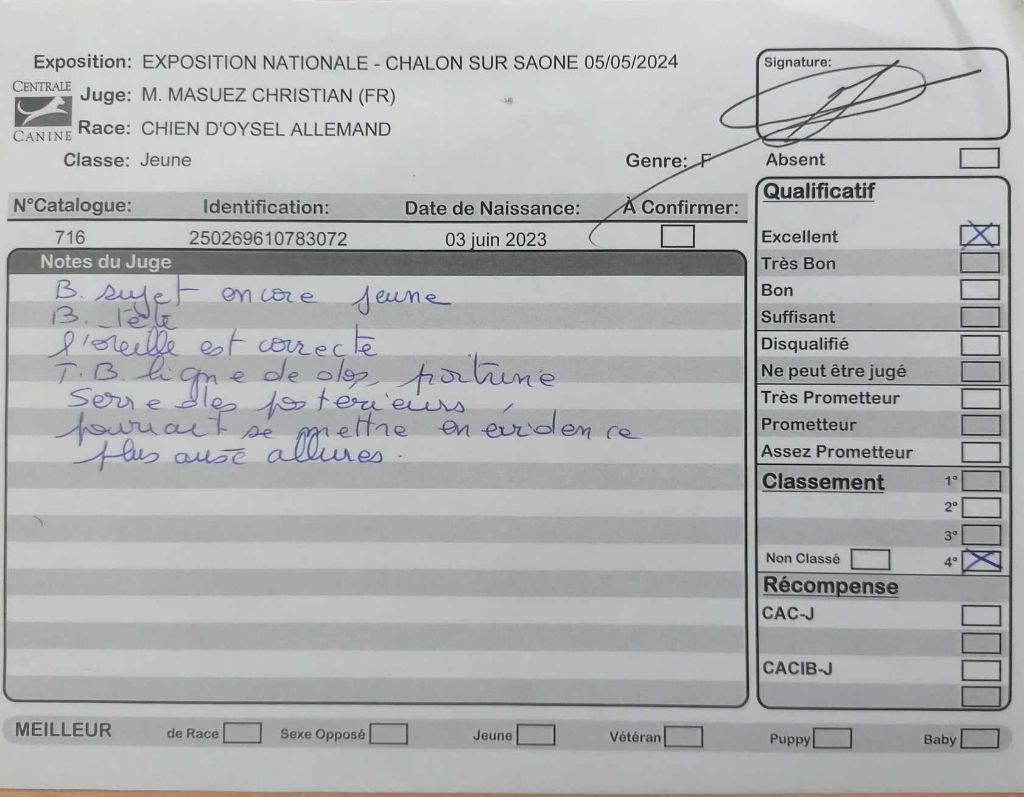 Exposition: EXPOSITION NATIONALE - CHALON SUR SAONE 05/05/2024
Signature:
CENTRALE
CANINE
Juge: M. MASUEZ CHRISTIAN (FR)
Race: CHIEN D'OYSEL ALLEMAND
Classe: Jeune
Genre: F
Absent
N°Catalogue: Identification: Date de Naissance: À Confirmer:
716 250269610783072 03 juin 2023
Notes du Juge
B. sujet encore jeune
B. Tête
l'oreille est correcte
T.B. ligne de dos, poitrine
Serre des posterieurs,
pourrait se mettre en evidence
plus aux allures.
Qualificatif
Excellent
Très Bon
Bon
Suffisant
Disqualifié
Ne peut être jugé
Très Prometteur
Prometteur
Assez Prometteur
Classement 1°
2°
3°
Non Classé 4°
Récompense
CAC-J
CACIB-J
MEILLEUR de Race Sexe Opposé Jeune Vétéran Puppy Baby